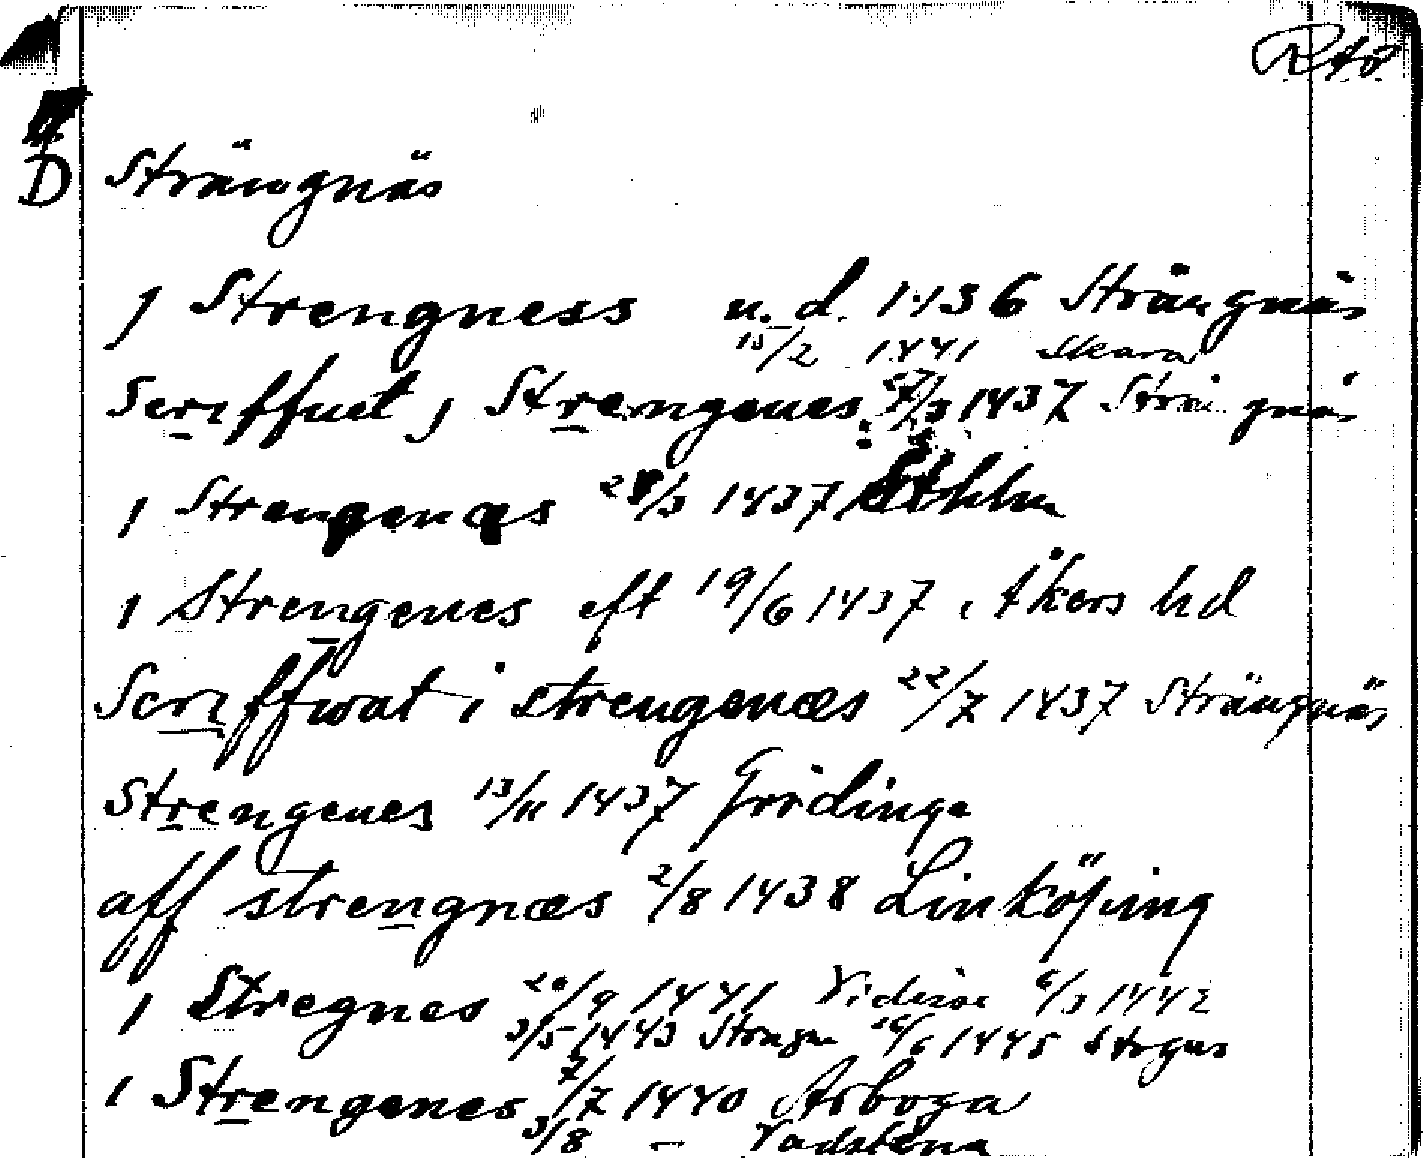 RAÖ
D Strängnäs
j Strengness u. d. 1436 Strängnäs
15/2 1441 Skara
Scriffuet j Strengenes 1437 Strängnäs
i Strengenæs 28/3 1437 Sthlm
i Strengenes eft 19/6 1437 Åkers hd
Scriffwat i strengenæs 22/7 1437 Strängnäs
Strengenes 13/11 1437 Grödinge
aff strengnæs 2/8 1438 Linköping
j Stregnes 20/9 1441 Vidisse 6/3 1442
3/5 1443 Strngn 1445 Strgns
i Strengenes 7/7 1440 Arboga
3/8 — Vadstena